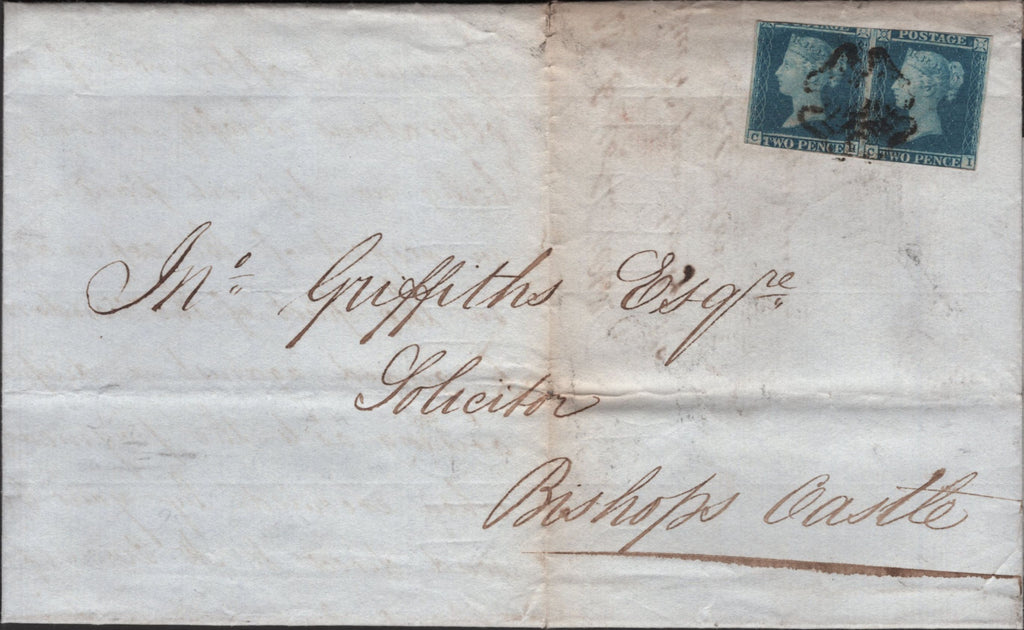 POSTAGE
C TWO PENCE H C TWO PENCE I
Jnº Griffiths Esqre
Solicitor
Bishops Castle